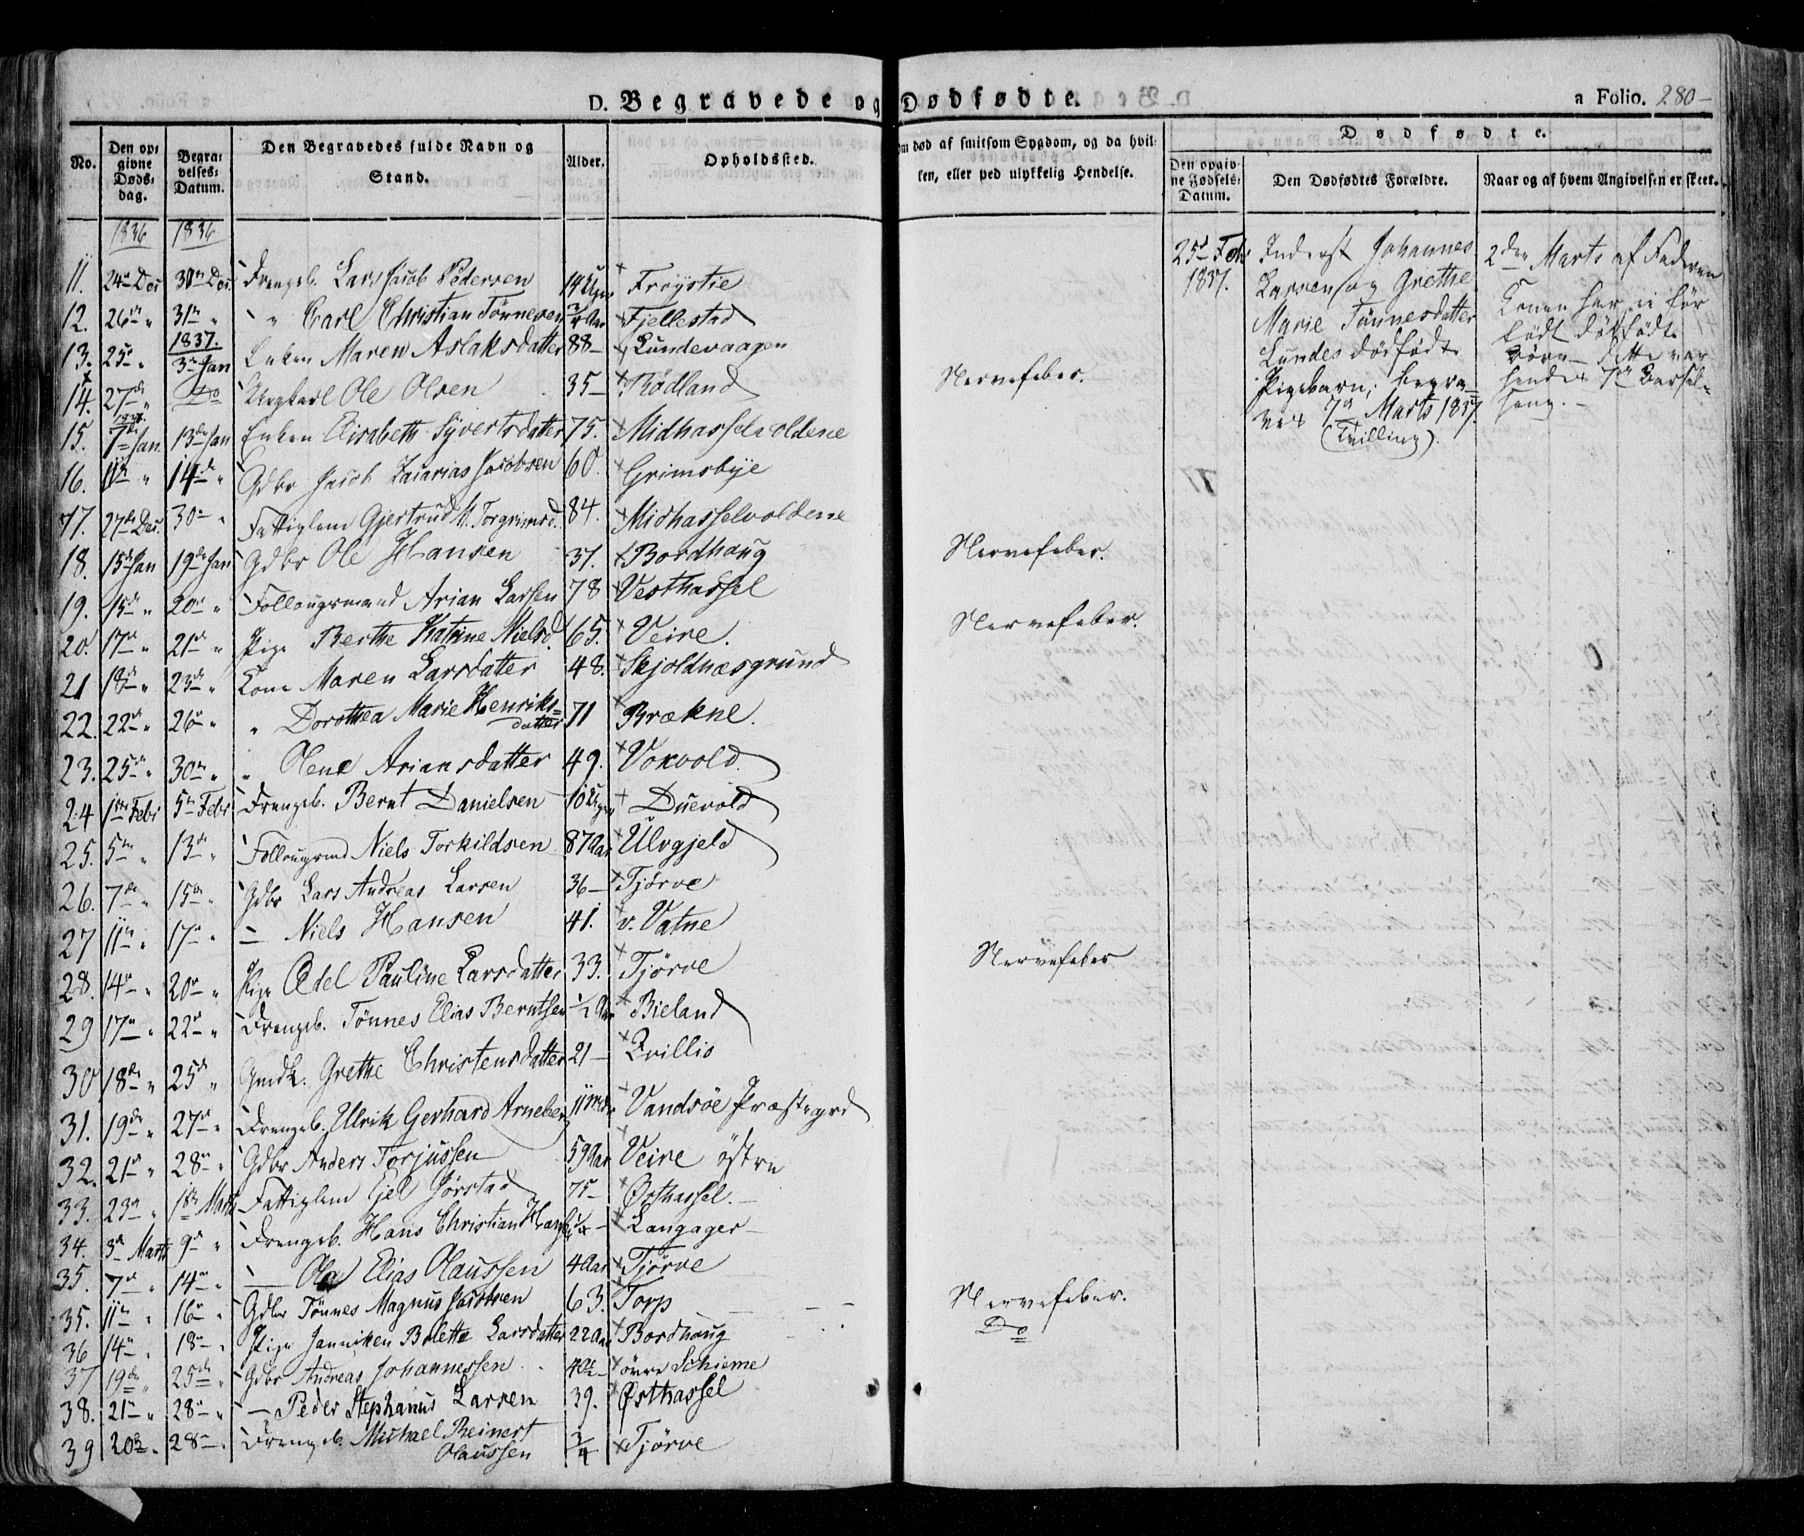 D. Begravede og Dødfødte.
a Folio. 280-
No.
Den op-
givne
Døds-
dag.
Begra-
velses-
Datum.
Den Begravedes fulde Navn og
Stand.
Alder.
Opholdssted.
Om død af smitsom Sygdom, og da hvil-
ken, eller ved ulykkelig Hendelse.
Dødfødte.
Den opgiv-
ne Fødsels-
Datum.
Den Dødfødtes Forældre.
Naar og af hvem Angivelsen er skeet.
1836 1836
11. 24 Dec 30 Dec. Drengeb. Lars Jacob Pedersen 14 Uger Frøystie
12. 26 " 31 " " Carl Christian Tønnesen 3/4 Aar Fjellestad
13. 25 " 1837. 3 Jan Enken Maren Aslaksdatter 88 – Lundevaagen
14. 27 " Do Ungkarl Ole Olsen 35 – Rødland Nervefeber.
15. 1837 7 Jan. 13 Jan Enken Elisabeth Syvertsdatter 75. Midhasselvoldene
16. 11 " 14 " Gdbr Jacob Zacarias Jacobsen 60. Grimsbye
17. 27 Dec. 30 " Fattiglem Gjertrud M. Torgrimsd. 84. Midhasselvoldene
18. 15 Jan 19 Jan Gdbr Ole Hansen 37. Bordhaug Nervefeber.
19. 15 " 20 " Follougsmand Arian Larsen 78 Vesthassel
20. 17 " 21 " Pige Berthe Katrine Nielsd. 65. Veire. Nervefeber.
21 18 " 23 " Kone Maren Larsdatter 48. Skjoldnæsgrund
22. 22 " 26 " " Dorothea Marie Henriks=
datter 71 Brækne.
23. 25 " 30 " " Olene Ariansdatter 49. Vokvold
24 1 Febr 5 Febr Drengeb. Bernt Danielsen 10 Uger Duevold
25. 5 " 13 " Follougsmd Niels Torkildsen 87 Aar Ulvgjeld
26. 7 " 15 " Gdbr Lars Andreas Larsen 36 – Tjørve
27 11 " 17 " – Niels Hansen 41. v. Vatne
28. 14 " 20 " Pige Edel Pauline Larsdatter 33. Tjørve Nervefeber
29 17 " 22 " Drengeb. Tønnes Elias Berntsen 1/2 Aar Bieland
30 18 " 25 " Gmdk. Grethe Christensdatter 21 – Qvillio
31. 19 " 27 " Drengeb. Ulrik Gerhard Arneberg 11 Vandsøe Præstegrd
32. 21 " 28 " Gdbr Anders Torjussen 59 Aar Veire østre
33. 23 " 1 Marts Fattiglem Jørstad 75 – Østhassel. –
34. 3 Marts 9 " Drengeb. Hans Christian Langager –
35. 7 " 14 " – Ole Elias Olaussen 4 Aar Tjørve
35. 11 " 16 " Gdbr Tønnes Magnus Jacobsen 63. Torp Nervefeber.
36 14 " 18 " Pige Janniken Bolette Larsdatter 22 Aar Bordhaug Do
37 19 " 25 " Gdbr Andreas Johannessen øvre Schieme
38. 21 " 28 " – Peder Stephanus Larsen 39. Østhassel
39 20 " 28 " Drengeb. Michael Reinert
Olaussen 3/4 Tjørve
25 Febr
1837.
Inderst Johannes
Larsen og Grethe
Marie Tønnesdatter
Lundes dødfødte
Pigebarn, begra=
ves 7 Marts 1837.
(Tvilling).
2den Marts af Faderen
Konen har ei før
født dødfødte
Børn – dette var
hendes 7 Barsel=
seng. –